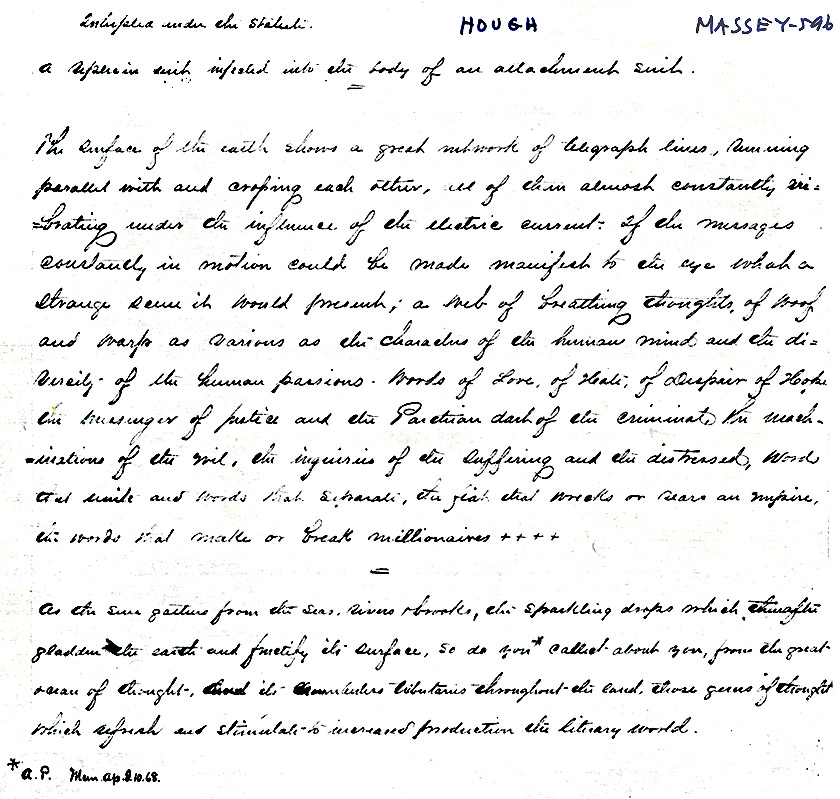 Interplea under the Statute. HOUGH MASSEY-596
A replevin suit injected into the body of an attachment suit.
=
The surface of the earth shows a great network of telegraph lines, running
parallel with and croping each other, all of them almost constantly vi=
=brating under the influence of the electric current. If the messages
constantly in motion could be made manifest to the eye what a
strange scene it would present; a web of breathing thoughts, of woof
and warp as various as the characters of the human mind and the di=
versity of the human passions. Words of Love, of Hate, of Despair of Hope
the messenger of justice and the Parthian dart of the criminal, the mach-
=inations of the evil, the inquiries of the suffering and the distressed, words
that unite and words that separate, the fiat that wrecks or rears an empire,
the words that make or break millionaires ++++
=
As the sun gathers from the seas, rivers & brooks, the sparkling drops which thereafter
gladden the earth and fructify its surface, so do you* collect about you, from the great
ocean of thought, and its numberless tributaries throughout the land, those germs of thought
which refresh and stimulate to increased production the literary world.
*A.P. Mem. Ap. 2 10. 68.